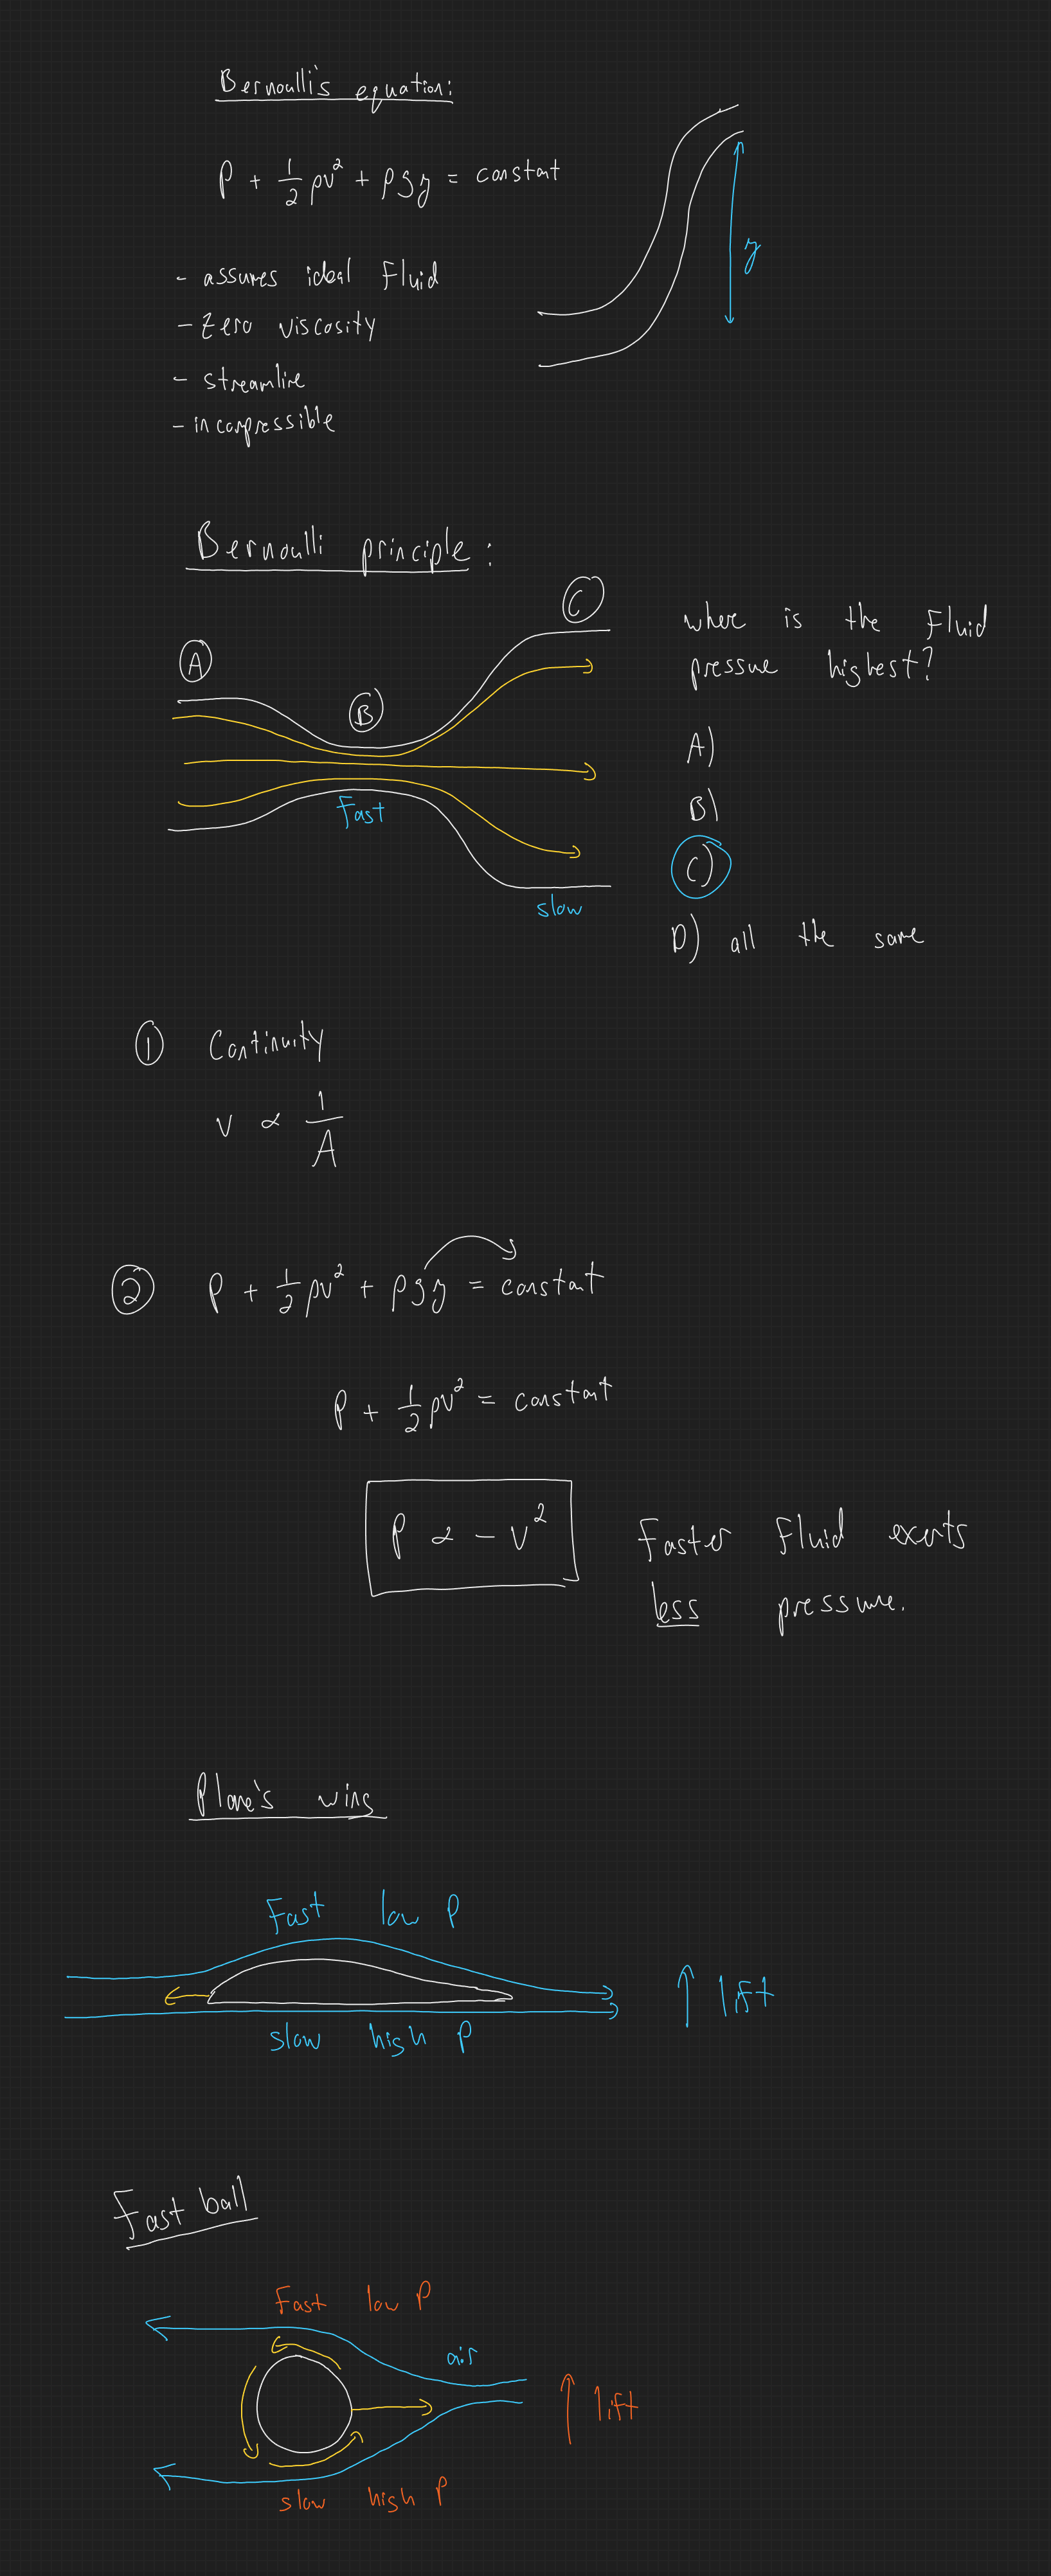 Bernoulli's equation:
P + 1/2 ρv² + ρgy = constant
y
- assumes ideal fluid
- zero viscosity
- streamline
- incompressible
Bernoulli principle:
C
where is the fluid
A
pressure highest?
B
A)
B)
Fast
C)
slow
D) all the same
① Continuity
v ∝ 1/A
② P + 1/2 ρv² + ρgy = constant
P + 1/2 ρv² = constant
P ∝ - v²
Faster fluid exerts
less pressure.
Plane's wing
Fast low P
lift
slow high P
Fast ball
Fast low P
air
lift
slow high P